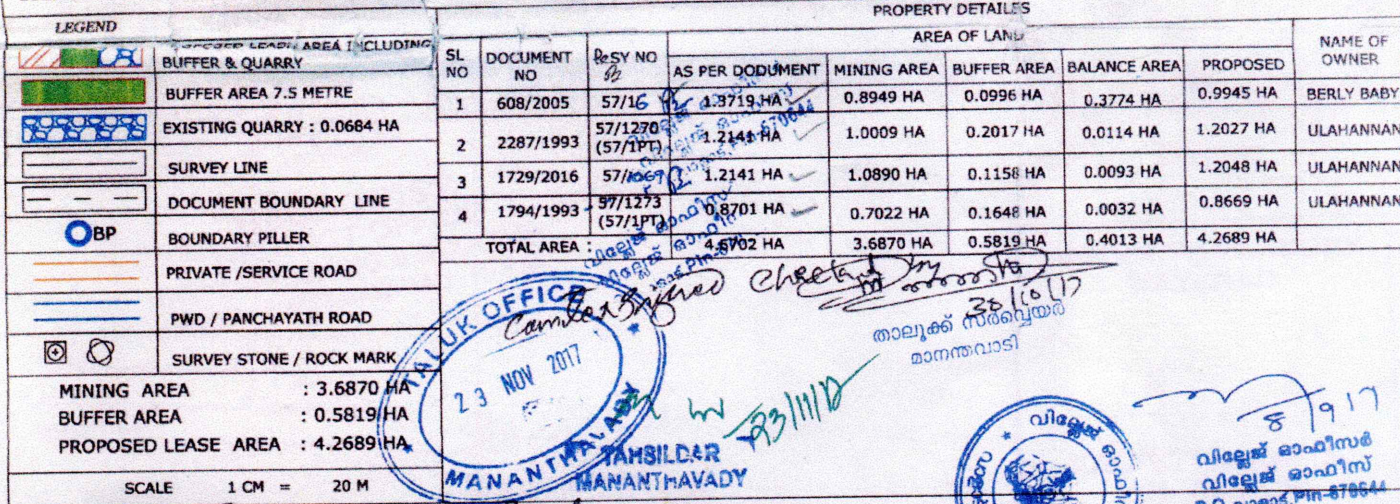 LEGEND
BUFFER & QUARRY
BUFFER AREA 7.5 METRE
EXISTING QUARRY : 0.0684 HA
SURVEY LINE
DOCUMENT BOUNDARY LINE
BP BOUNDARY PILLER
PRIVATE /SERVICE ROAD
PWD / PANCHAYATH ROAD
SURVEY STONE / ROCK MARK
MINING AREA : 3.6870 HA
BUFFER AREA : 0.5819 HA
PROPOSED LEASE AREA : 4.2689 HA
SCALE 1 CM = 20 M
PROPERTY DETAILES
SL NO DOCUMENT NO ReSY NO AREA OF LAND NAME OF OWNER
AS PER DODUMENT MINING AREA BUFFER AREA BALANCE AREA PROPOSED
1 608/2005 57/16 1.3719 HA 0.8949 HA 0.0996 HA 0.3774 HA 0.9945 HA BERLY BABY
2 2287/1993 57/1270 (57/1PT) 1.2141 HA 1.0009 HA 0.2017 HA 0.0114 HA 1.2027 HA ULAHANNAN
3 1729/2016 1.2141 HA 1.0890 HA 0.1158 HA 0.0093 HA 1.2048 HA ULAHANNAN
4 1794/1993 57/1273 (57/1PT) 0.8701 HA 0.7022 HA 0.1648 HA 0.0032 HA 0.8669 HA ULAHANNAN
TOTAL AREA : 4.6702 HA 3.6870 HA 0.5819 HA 0.4013 HA 4.2689 HA
30/10/17
താലൂക്ക് സർവ്വെയർ
മാനന്തവാടി
TALUK OFFICE
23 NOV 2017
MANANTHAVADY
23/11/17
TAHSILDAR
MANANTHAVADY
വില്ലേജ്
വില്ലേജ് ഓഫീസർ
വില്ലേജ് ഓഫീസ്
Pin-670644